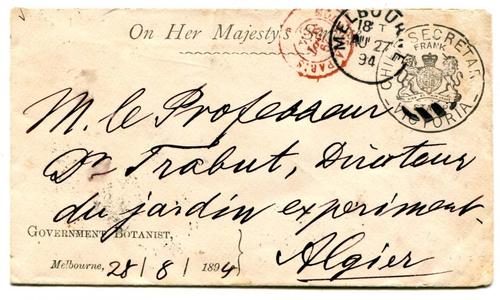 On Her Majesty's
MELBOURNE
18
AU 27
94
CHIEF SECRETARY
FRANK
VICTORIA
PARIS
M. le Professeur
Dr Trabut, Directeur
du jardin experiment.
Algier
GOVERNMENT BOTANIST,
Melbourne, 28/8/1894